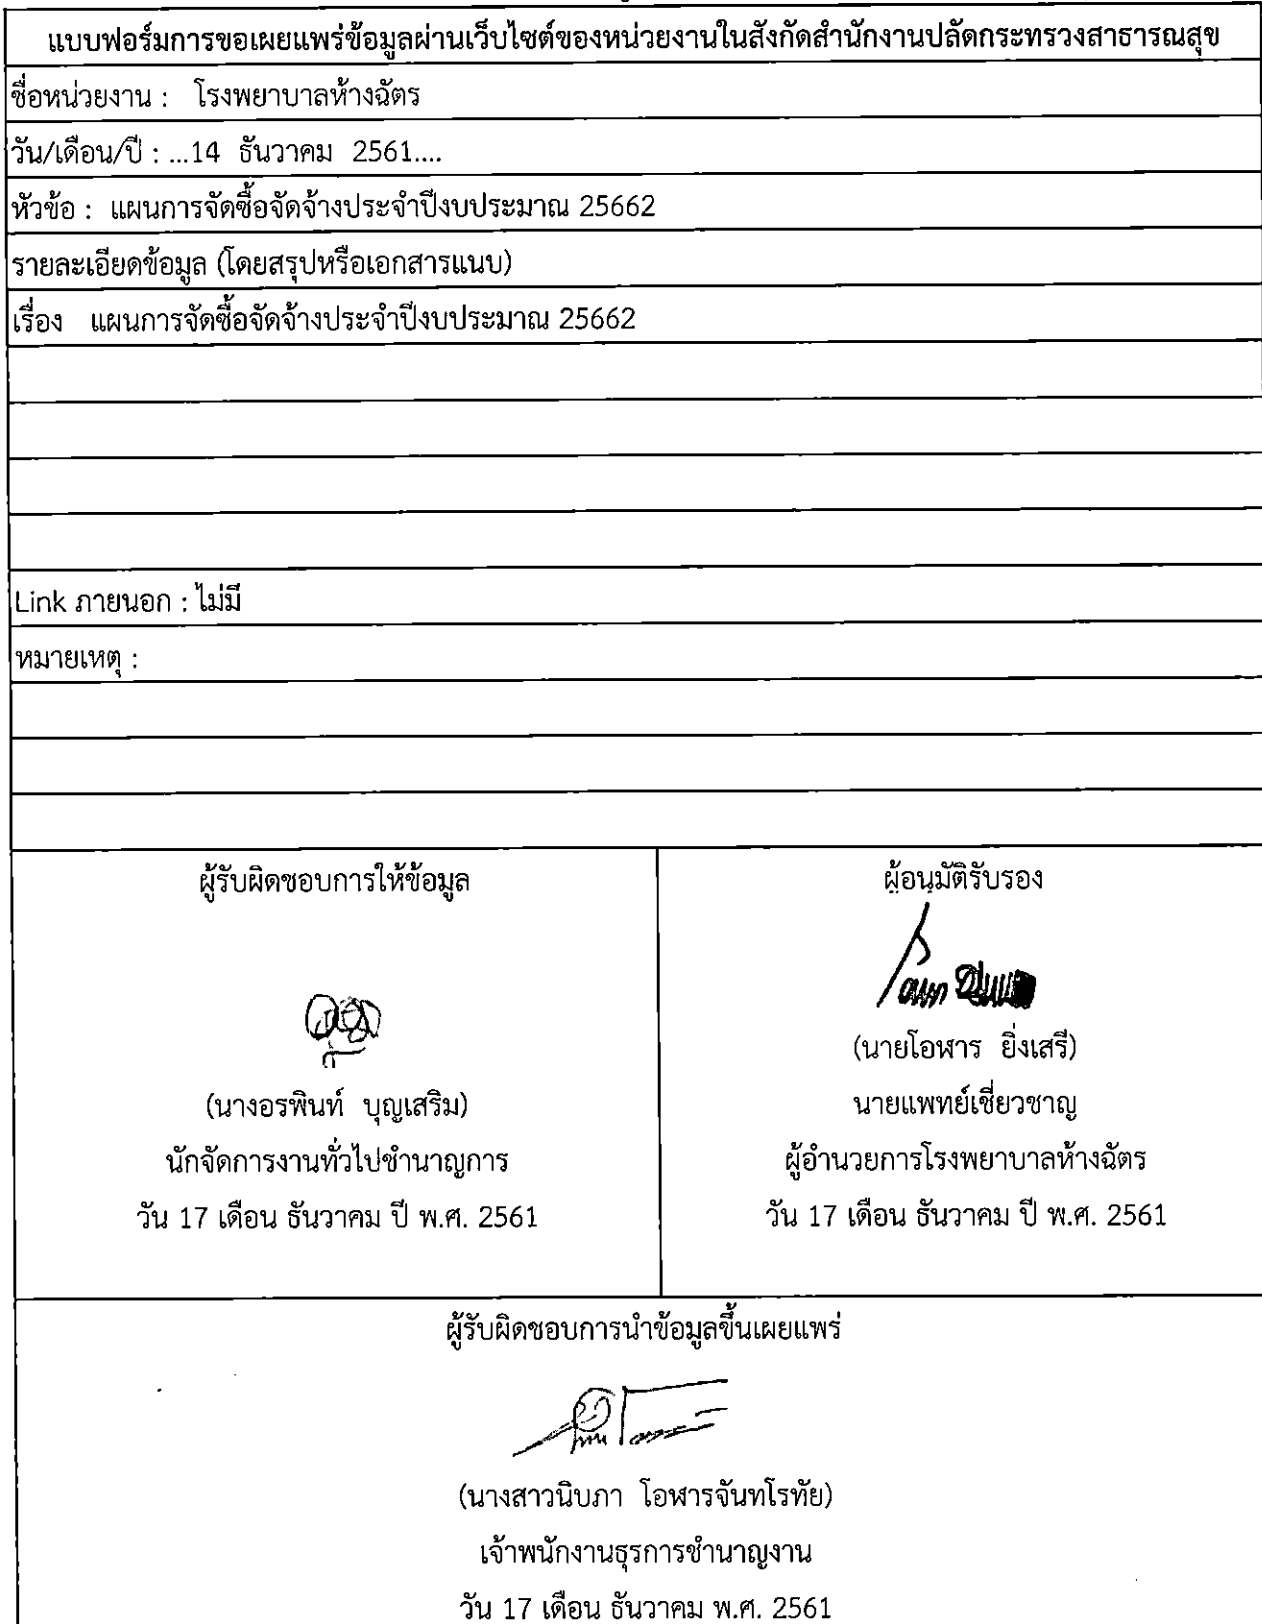 แบบฟอร์มการขอเผยแพร่ข้อมูลผ่านเว็บไซต์ของหน่วยงานในสังกัดสำนักงานปลัดกระทรวงสาธารณสุข
ชื่อหน่วยงาน : โรงพยาบาลห้างฉัตร
วัน/เดือน/ปี : ...14 ธันวาคม 2561....
หัวข้อ : แผนการจัดซื้อจัดจ้างประจำปีงบประมาณ 25662
รายละเอียดข้อมูล (โดยสรุปหรือเอกสารแนบ)
เรื่อง แผนการจัดซื้อจัดจ้างประจำปีงบประมาณ 25662
Link ภายนอก : ไม่มี
หมายเหตุ :
ผู้รับผิดชอบการให้ข้อมูล
(นางอรพินท์ บุญเสริม)
นักจัดการงานทั่วไปชำนาญการ
วัน 17 เดือน ธันวาคม ปี พ.ศ. 2561
ผู้อนุมัติรับรอง
(นายโอฬาร ยิ่งเสรี)
นายแพทย์เชี่ยวชาญ
ผู้อำนวยการโรงพยาบาลห้างฉัตร
วัน 17 เดือน ธันวาคม ปี พ.ศ. 2561
ผู้รับผิดชอบการนำข้อมูลขึ้นเผยแพร่
(นางสาวนิบภา โอฬารจันทโรทัย)
เจ้าพนักงานธุรการชำนาญงาน
วัน 17 เดือน ธันวาคม พ.ศ. 2561